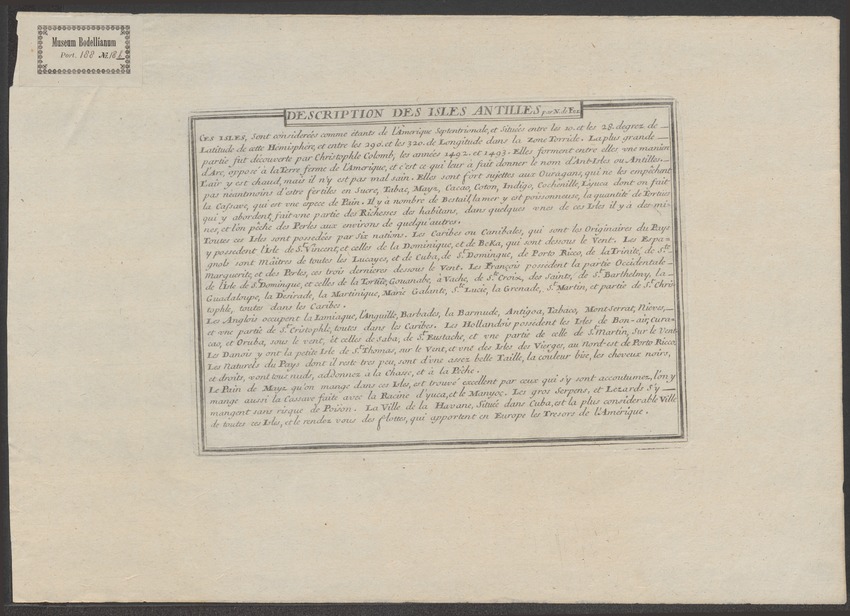 Museum Bodellianum
Port. 188 № 181
DESCRIPTION DES ISLES ANTILLES, par N. de Fer
CES ISLES, Sont considerées comme étants de l'Amerique Septentrionale, et Situées entre les 10. et les 28. degrez de
Latitude de cette Hemisphére, et entre les 290. et les 320. de Longitude dans la Zone Torride. La plus grande
partie fut découverte par Christophle Colomb, les années 1492. et 1493. Elles forment entre elles vne maniere
d'Arc, opposé à la Terre ferme de l'Amerique, et c'est ce qui leur à fait donner le nom d'Ant-Isles ou Antilles.
L'air y est chaud, mais il n'y est pas mal sain. Elles sont fort sujettes aux Ouragans, qui ne les empêchent
pas néantmoins d'estre fértiles en Sucre, Tabac, Mayz, Cacao, Coton, Indigo, Cochenille, dont on fait
la Cassave, qui est vne epece de Pain. Il y à nombre de Bestail, la mer y est poissonneuse, la quantité de Tortues
qui y abordent, fait vne partie des Richesses des habitans, dans quelques vnes de ces Isles il y à des mi-
nes, et l'on pêche des Perles aux environs de quelqu'autres.
Toutes ces Isles sont possedées par Six nations. Les Caribes ou Canibales, qui sont les Originaires du Pays
y possedent l'Isle de St. Vincent, et celles de la Dominique, et de Beka, qui sont dessous le Vent. Les Espa-
gnols sont Maîtres de toutes les Lucayes, et de Cuba, de St. Domingue, de Porto Ricco, de la Trinité, de Ste.
Marguerite, et des Perles, ces trois dernieres dessous le Vent. Les François possedent la partie Occidentale
de l'Isle de St. Domingue, et celles de la Tortüe, Gouanabe, à Vache, de Ste. Croix, des Saints, de St. Barthelmy, la
Guadaloupe, la Desirade, la Martinique, Marie Galante, Ste. Lucie, la Grenade, St. Martin, et partie de St. Chris-
tophle, toutes dans les Caribes.
Les Anglois occupent la Iamiaque, l'Anguille, Barbades, la Barmude, Antigoa, Tabaco, Mont-serrat, Nieves,
et vne partie de St. Cristophle, toutes dans les Caribes. Les Hollandois possedent les Isles de Bon-air, Cura-
cao, et Oruba, sous le vent, et celles de Saba, de St. Eustache, et vne partie de celle de St. Martin, sur le Vent
Les Danois y ont la petite Isle de St. Thomas, sur le Vent, et vne des Isles des Vierges, au Nord-est de Porto Ricco,
Les Naturels du Pays dont il reste tres peu, sont d'une assez belle Taille, la couleur bise, les cheveux noirs,
et droits, vont tous nuds, addonnez à la Chasse, et à la Pêche.
Le Pain de Mayz qu'on mange dans ces Isles, est trouvé excellent par ceux qui s'y sont accoutumez, l'on y
mange aussi la Cassave faite avec la Racine d'yuca, et le Manyoc. Les gros Serpens, et Lezards s'y
mangent sans risque de Poison. La Ville de la Havane, Situé dans Cuba, est la plus considerable Ville
de toutes ces Isles, et le rendez vous des flottes, qui apportent en Europe les Tresors de l'Amérique.